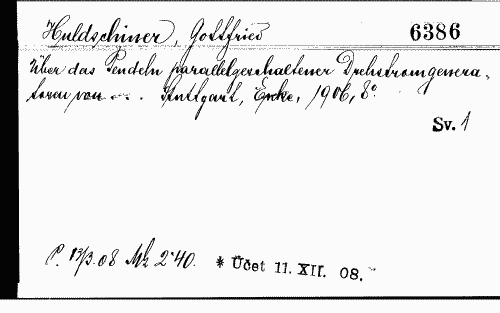 Huldschiner, Gottfried 6386
Über das Pendeln parallelgeschaltener Drehstromgenera-
toren von —. Stuttgart, Enke, 1906, 8°
Sv. 1
P. 13/3.08 Mk 2·40. * Účet 11. XII. 08.